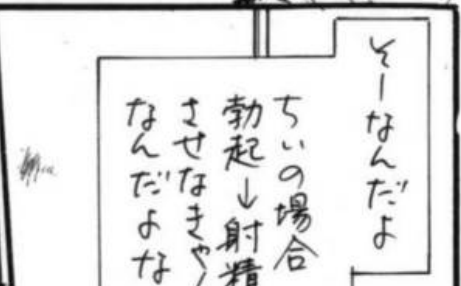 そーなんだよ
ちぃの場合
勃起→射精
させなきゃ
なんだよな